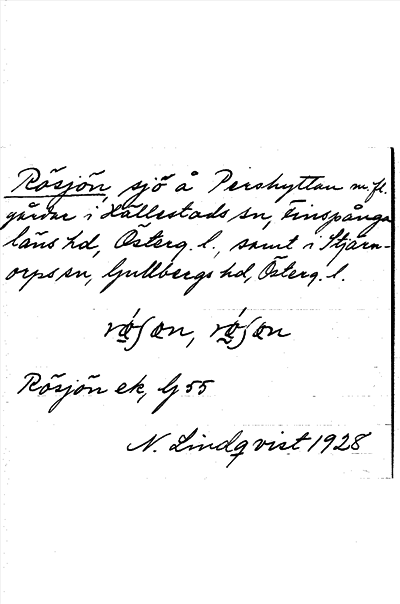 Rösjön, sjö å Pershyttan m. fl.
gårdar i Hällestads sn, Finspånga
läns hd, Österg. l., samt i Stjärn-
orps sn, Gullbergs hd, Österg. l.
Rösjön ek, G 55
N. Lindqvist 1928